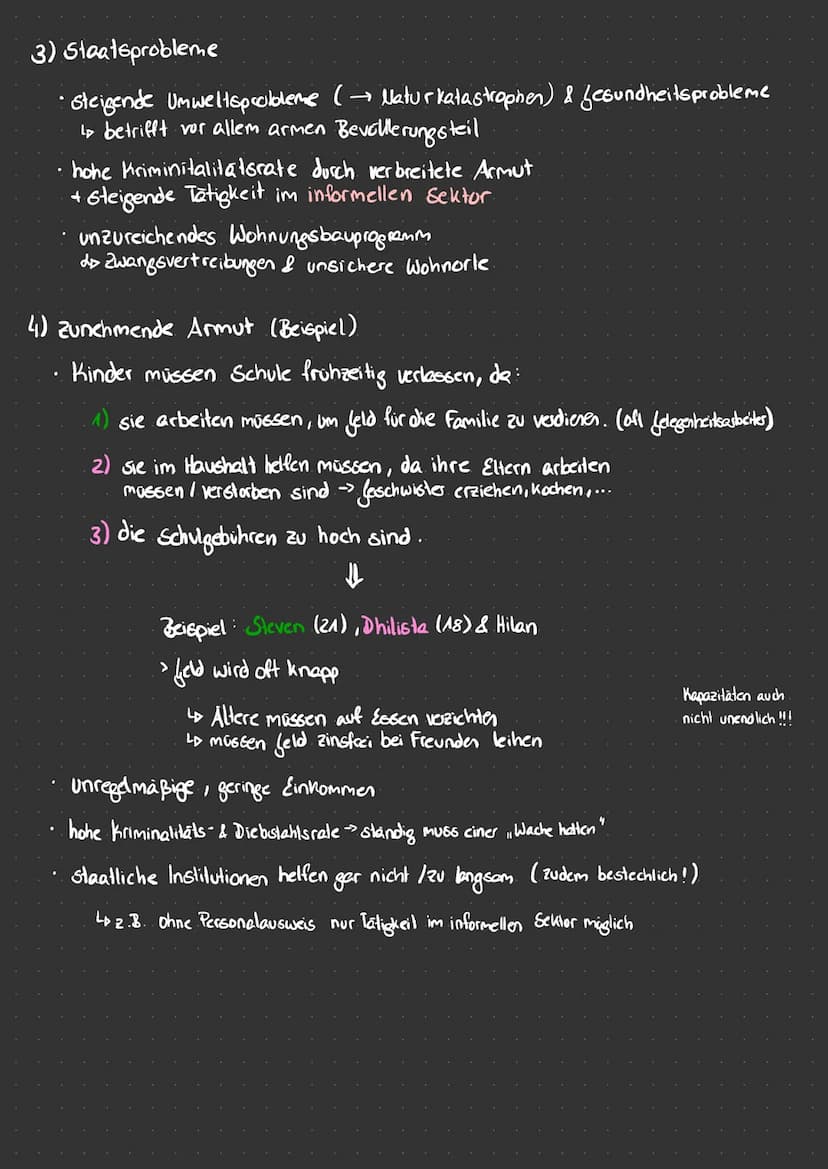 3) Staatsprobleme
· steigende Umweltsprobleme (→ Naturkatastrophen) & Gesundheitsprobleme
↳ betrifft vor allem armen Bevölkerungsteil
· hohe Kriminitalitätsrate durch verbreitete Armut
+ steigende Tätigkeit im informellen Sektor
· unzureichendes Wohnungsbauprogramm
↳ Zwangsvertreibungen & unsichere Wohnorte
4) zunehmende Armut (Beispiel)
· Kinder müssen Schule frühzeitig verlassen, da:
1) sie arbeiten müssen, um Geld für die Familie zu verdienen. (oft Gelegenheitsarbeiter)
2) sie im Haushalt helfen müssen, da ihre Eltern arbeiten
müssen / verstorben sind → Geschwister erziehen, kochen, ...
3) die Schulgebühren zu hoch sind.
⇓
Beispiel: Steven (21), Dhilista (18) & Hilan
> Geld wird oft knapp
Kapazitäten auch
nicht unendlich!!!
↳ Ältere müssen auf Essen verzichten
↳ müssen Geld zinsfrei bei Freunden leihen
· unregelmäßige, geringe Einkommen
· hohe Kriminalitäts- & Diebstahlsrate → ständig muss einer „Wache halten"
· staatliche Institutionen helfen gar nicht / zu langsam (zudem bestechlich!)
↳ z.B. ohne Personalausweis nur Tätigkeit im informellen Sektor möglich